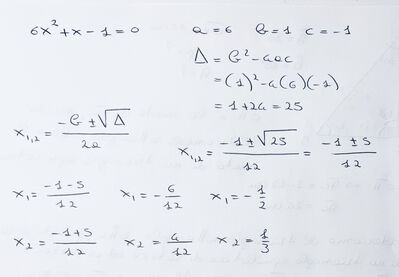 6x²+x-1=0
a=6 b=1 c=-1
Δ=b²-4ac
=(1)²-4(6)(-1)
=1+24=25
x₁,₂=(-b±√Δ)/2a
x₁,₂=(-1±√25)/12=(-1±5)/12
x₁=(-1-5)/12 x₁=-6/12 x₁=-1/2
x₂=(-1+5)/12 x₂=4/12 x₂=1/3